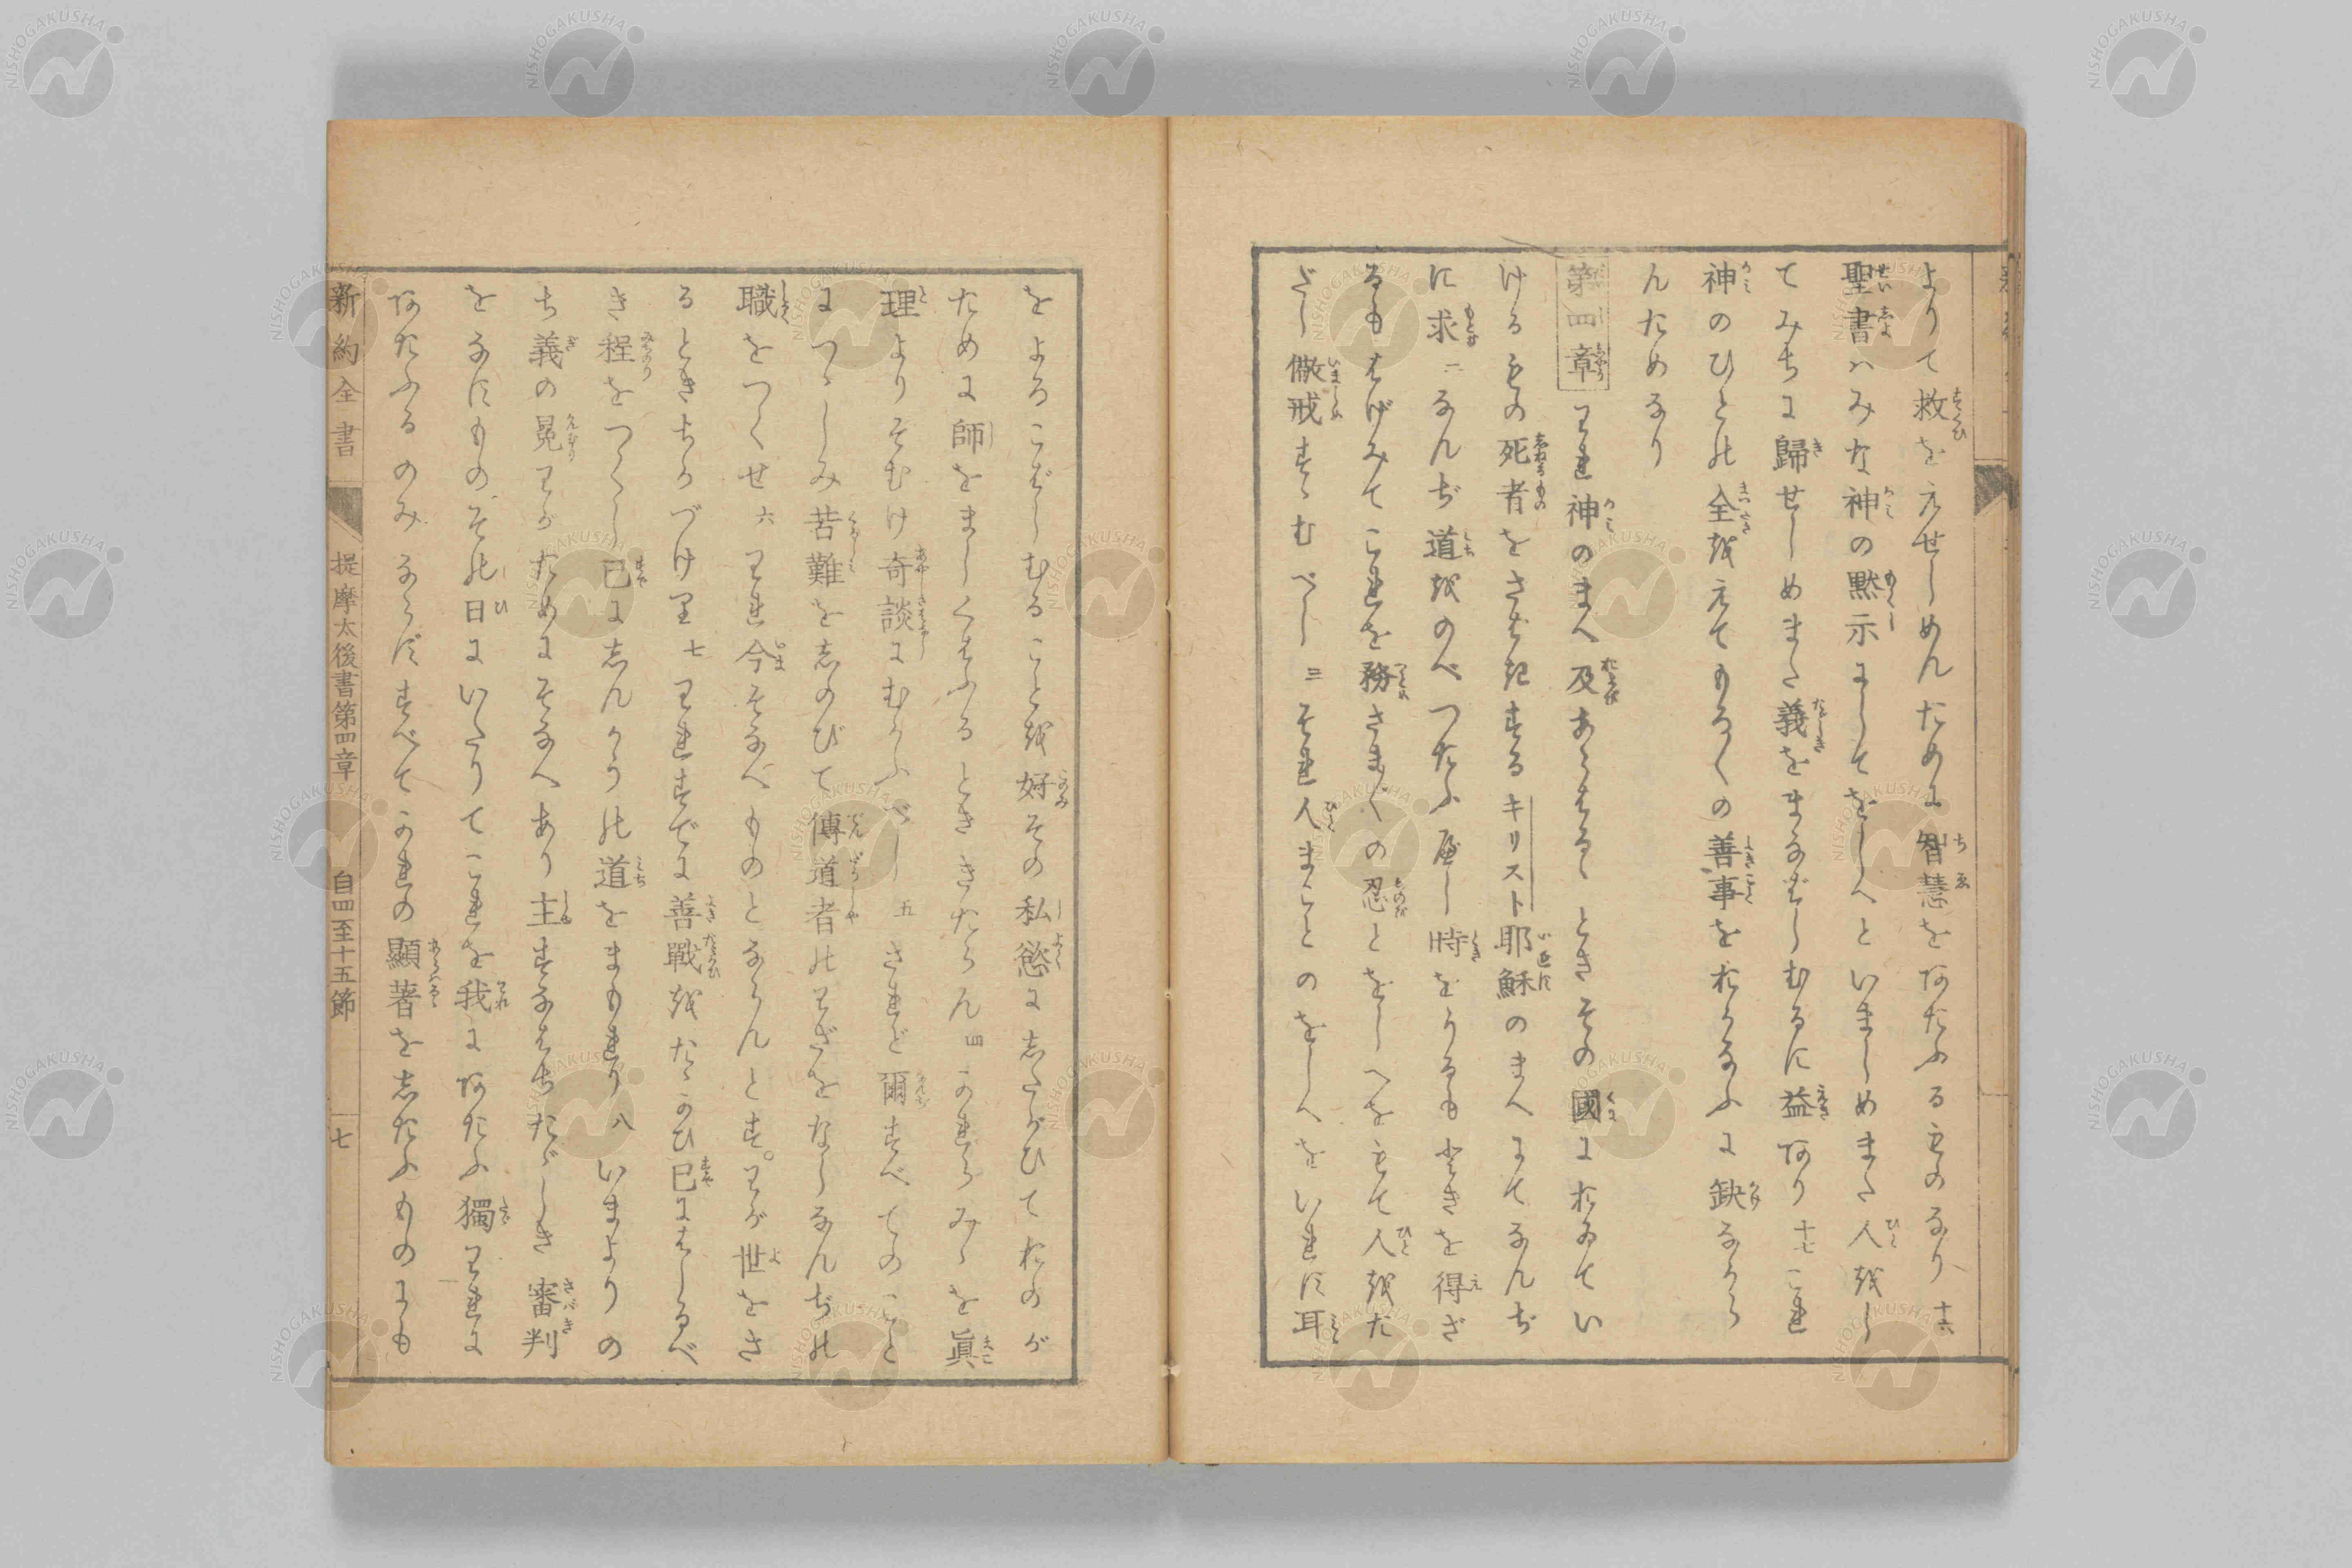 よりて救をえせしめんために智慧をあたふるものなり十六
聖書ハみな神の黙示にしてをしへといましめまた人をし
てみちに歸せしめまた義をまなばしむるに益あり十七これ
神のひとの全をえてもろ〳〵の善事をおこなふに缺なから
んためなり
第四章 われ神のまへ及あらはるゝときその國においてい
ける者の死者をさばきするキリスト耶穌のまへにてなんぢ
に求二なんぢ道をのべつたふべし時をうるも時を得ざ
るもはげみてこれを務さま〴〵の忍とをしへをもて人をた
ざし儆戒すゝむべし三それ人まことのをしへをいれず耳
をよろこばしむることを好その私慾にしたがひておのが
ために師をましくはふるときゝたらん四かれらみゝを眞
理よりそむけ奇談にむかふべし五されど爾すべてのこと
につゝしみ苦難をしのびて傳道者のわざをなしなんぢの
職をつくせ六われ今そなへものとならんとす。わが世をさ
るときちかづけり七われすでに善戰をたゝかひ已にはしるべ
き程をつくし已にしんかうの道をまもれり八いまよりの
ち義の冕わがためにそなへあり主すなはちたゞしき審判
をなすものその日にいたりてこれを我にあたふ獨われに
あたふるのみならずすべてかれの顯著をしたふものにも
新約全書 提摩太後書第四章 自四至十五節 七
NISHOGAKUSHA